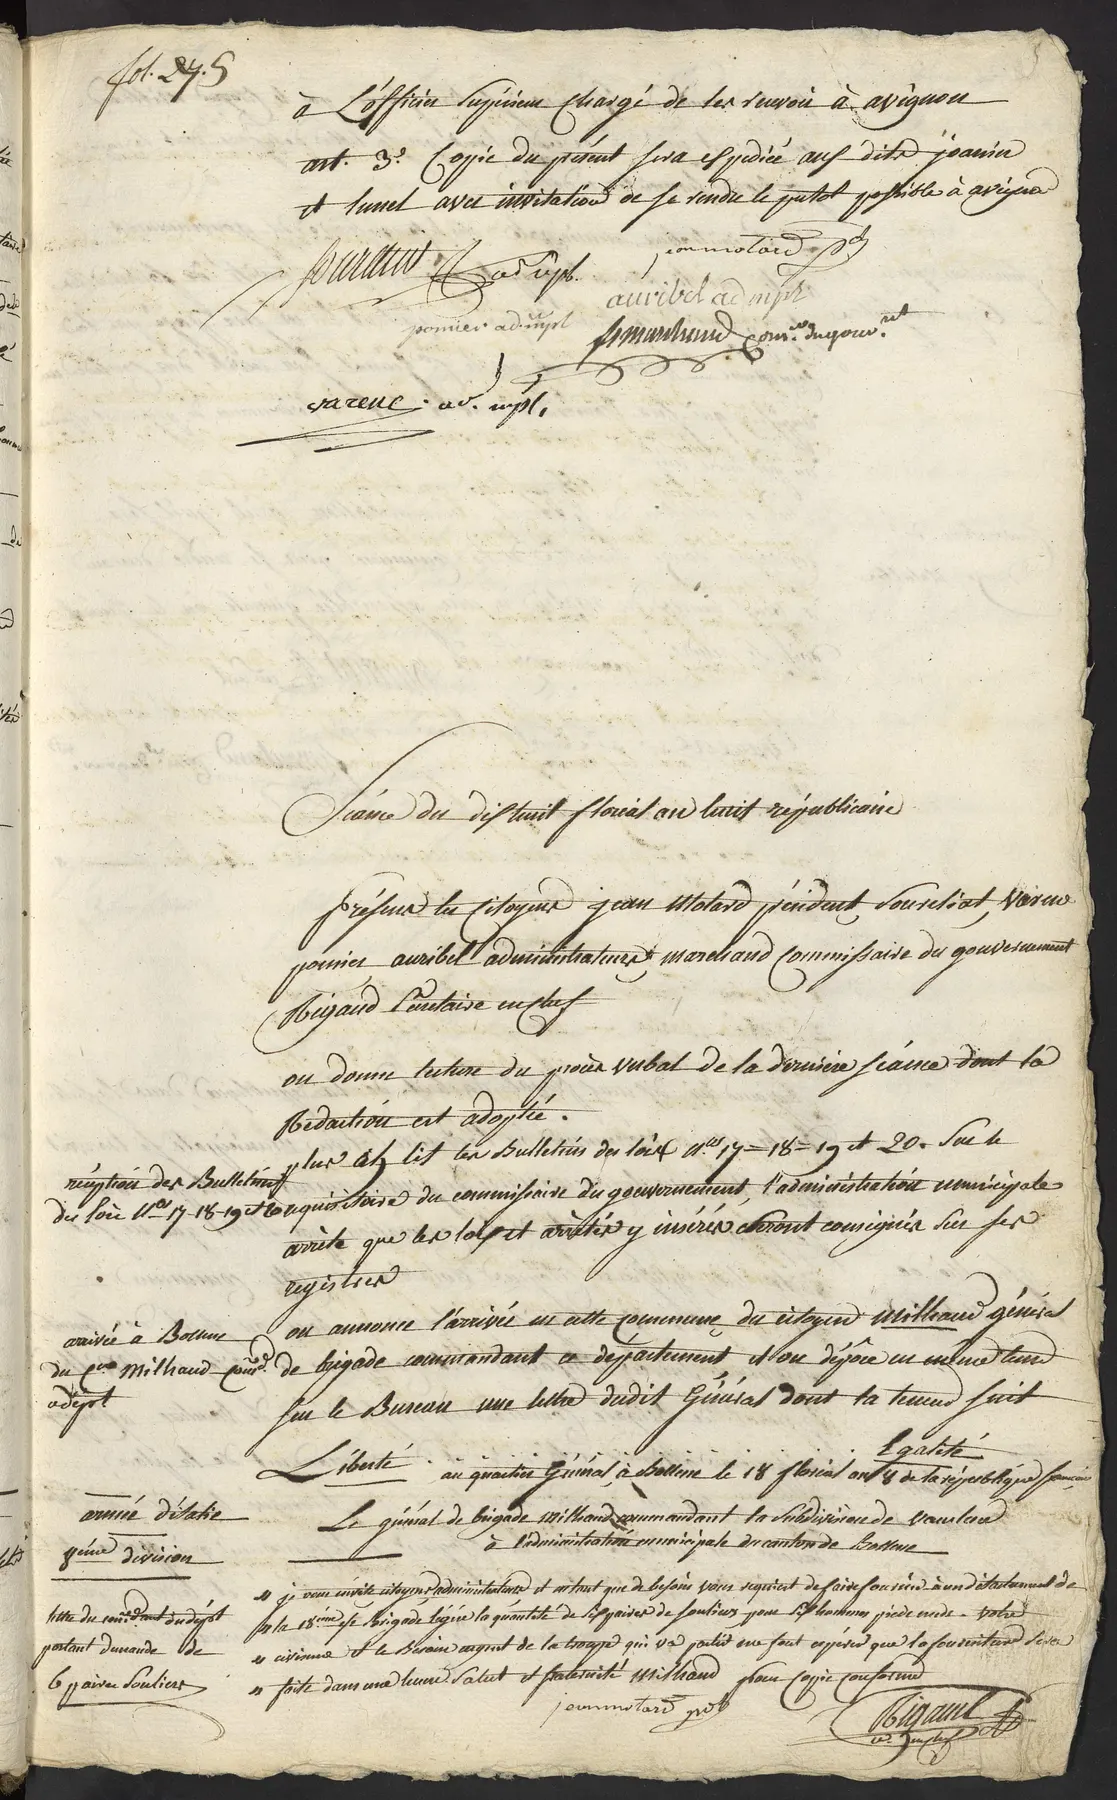 fol. 275
à L'officier Supérieur Chargé de les recevoir à avignon
art. 3.e Copie du présent sera expédiée aux dits joanin
et lunel avec invitation de se rendre le plutot possible à avignon
ad. mpl.
jean motard pdt
auribel ad mpl
pomier ad mpl
marchand Com.re du gouv.net
varene. ad. mpl.
Séance du dixhuit floréal an huit républicain
Présens les Citoyens jean Motard président, Soureliat, Varene
pomier, auribel administrateurs, marchand Commissaire du gouvernement
Rigaud Secretaire en chef
on donne lecture du procès verbal de la derniere séance dont la
Rédaction est adoptée.
plus on lit les Bulletins des loix n.os 17 = 18 = 19 et 20. Sur le
réception des Bulletins
des loix n.os 17-18-19 et 20
requisitoire du commissaire du gouvernement, l'administration municipale
arrête que les lois et arrêtés y insérés seront consignés sur ses
registres
on annonce l'arrivée en cette commune du citoyen Milhaud général
arrivée à Bollene
du C.en Milhaud Com.d
adépt
de brigade commandant ce département et on dépose en meme tems
sur le Bureau une lettre dudit Général dont la teneur suit
Liberté Egalité
au quartier Général, à Bollene le 18 floréal an 8 de la république française
armée d'italie
8eme division
Le général de brigade Milhaud commandant la Subdivision de Vaucluse
à l'administration municipale du canton de Bollene
lettre du com.dant du dépt
portant demande de
6 paires Souliers
" je vous invite citoyens administrateurs et en tant que de besoin vous requiert de faire fournir à un détachement de
" la 18eme 1/2 Brigade légère la quantité de six paires de souliers pour six hommes pieds nuds. Votre
" civisme et le Besoin urgent de la troupe qui va partir me font espérer que la fourniture sera
" faite dans une heure. Salut et fraternité Milhaud pour Copie Conforme
jean motard pdt
Rigaud
se. en chef